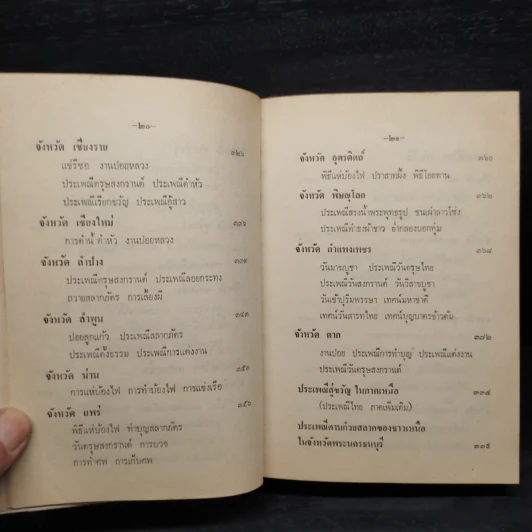 —๒๐—
จังหวัด เชียงราย
แซรีซอ งานปอยหลวง
ประเพณีตรุษสงกรานต์ ประเพณีดำหัว
ประเพณีเรียกขวัญ ประเพณีอู้สาว
จังหวัด เชียงใหม่
การดำน้ำ ดำหัว งานปอยหลวง
จังหวัด ลำปาง
ประเพณีตรุษสงกรานต์ ประเพณีลอยกระทง
ถวายสลากภัตร การเลี้ยงผี
จังหวัด ลำพูน
ปอยลูกแก้ว ประเพณีสลากภัตร
ประเพณีตั้งธรรม ประเพณีการแต่งงาน
จังหวัด น่าน
การแห่บ้องไฟ การทำบ้องไฟ การแข่งเรือ
จังหวัด แพร่
พิธีแห่บ้องไฟ ทำบุญสลากภัตร
วันตรุษสงกรานต์ การบวช
การทำศพ การเก็บศพ
—๒๑—
จังหวัด อุตรดิตถ์
พิธีแห่บ้องไฟ ปราสาทผึ้ง พิธีโยยทาน
จังหวัด พิษณุโลก
ประเพณีสรงน้ำพระพุทธรูป ชนเผ่าลาวโซ่ง
จังหวัด กำแพงเพชร
วันมาฆบูชา ประเพณีวันตรุษไทย
ประเพณีวันสงกรานต์ วันวิสาขบูชา
วันเข้าปุริมพรรษา เทศน์มหาชาติ
เทศน์วันสารทไทย เทศน์บุญบาตรข้าวต้ม
จังหวัด ตาก
งานปอย ประเพณีการทำบุญ ประเพณีแต่งงาน
ประเพณีวันตรุษสงกรานต์
ประเพณีสู่ขวัญ ในภาคเหนือ
(ประเพณีไทย ภาคเพิ่มเติม)
ประเพณีตานก๋วยสลากของชาวเหนือ
ในจังหวัดพระนครธนบุรี